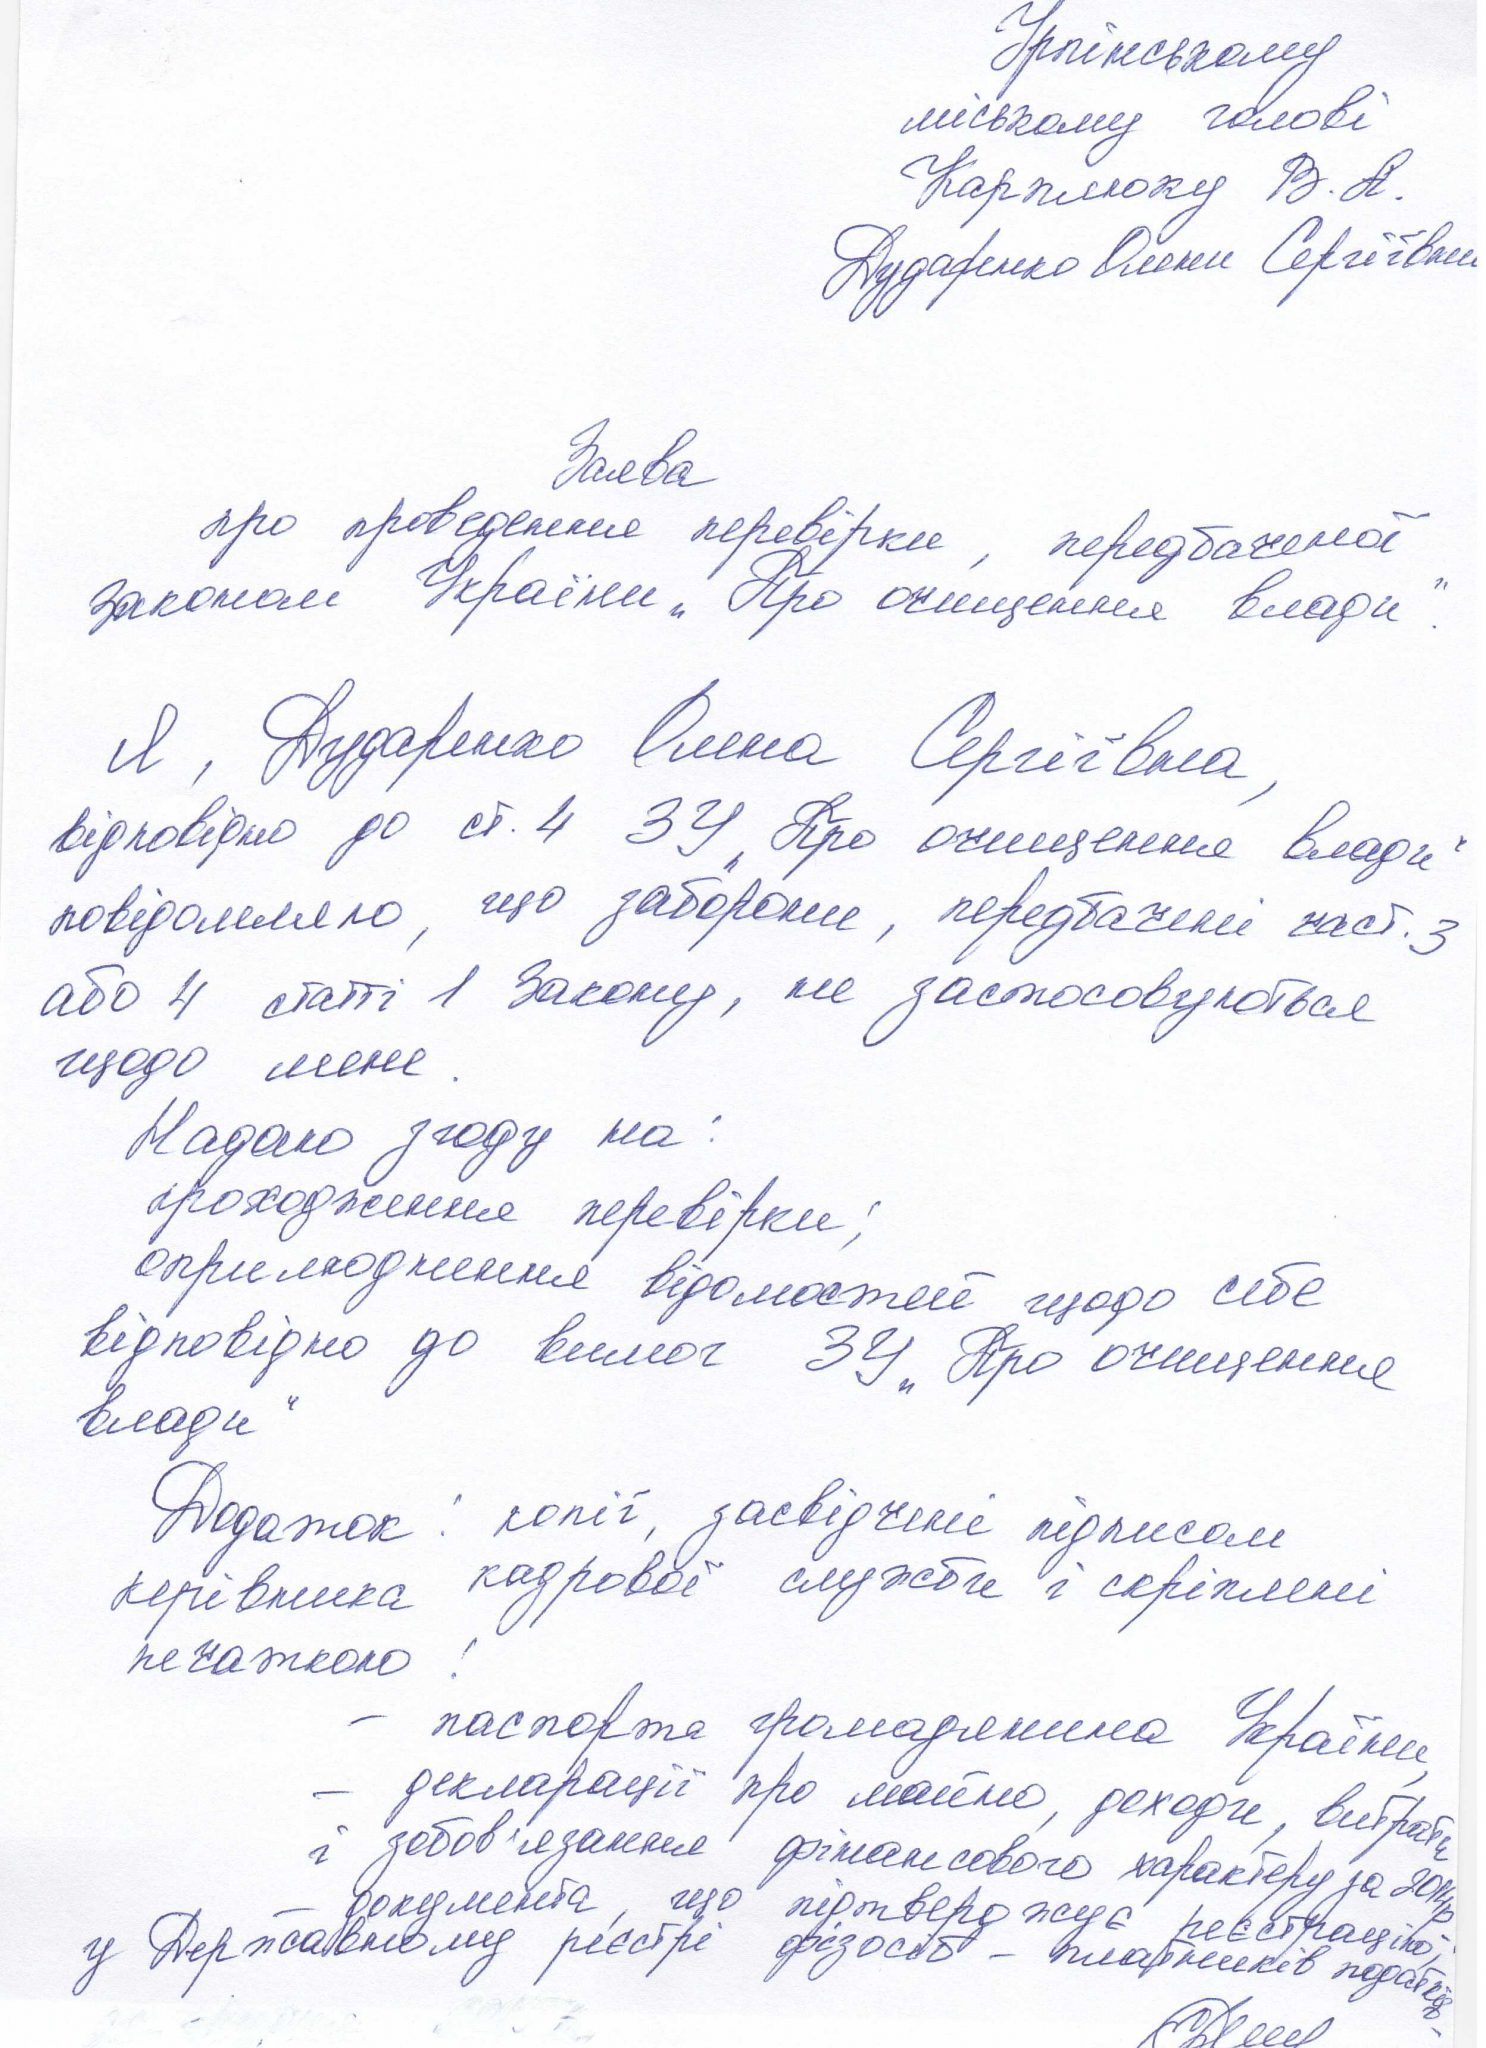 Ірпінському
міському голові
Карплюку В.А.
Дударенко Олени Сергіївни
Заява
про проведення перевірки, передбаченої
законом України „Про очищення влади".
Я, Дударенко Олена Сергіївна,
відповідно до ст. 4 ЗУ „Про очищення влади"
повідомляю, що заборони, передбачені част. 3
або 4 статті 1 Закону, не застосовуються
щодо мене.
Надаю згоду на:
проходження перевірки;
оприлюднення відомостей щодо себе
відповідно до вимог ЗУ „Про очищення
влади"
Додаток: копії, засвідчені підписом
керівника кадрової служби і скріплені
печаткою:
- паспорта громадянина України,
- декларації про майно, доходи, витрати
і зобов'язання фінансового характеру за
- документа, що підтверджує реєстрацію
у Державному реєстрі фізосіб - платників податків.